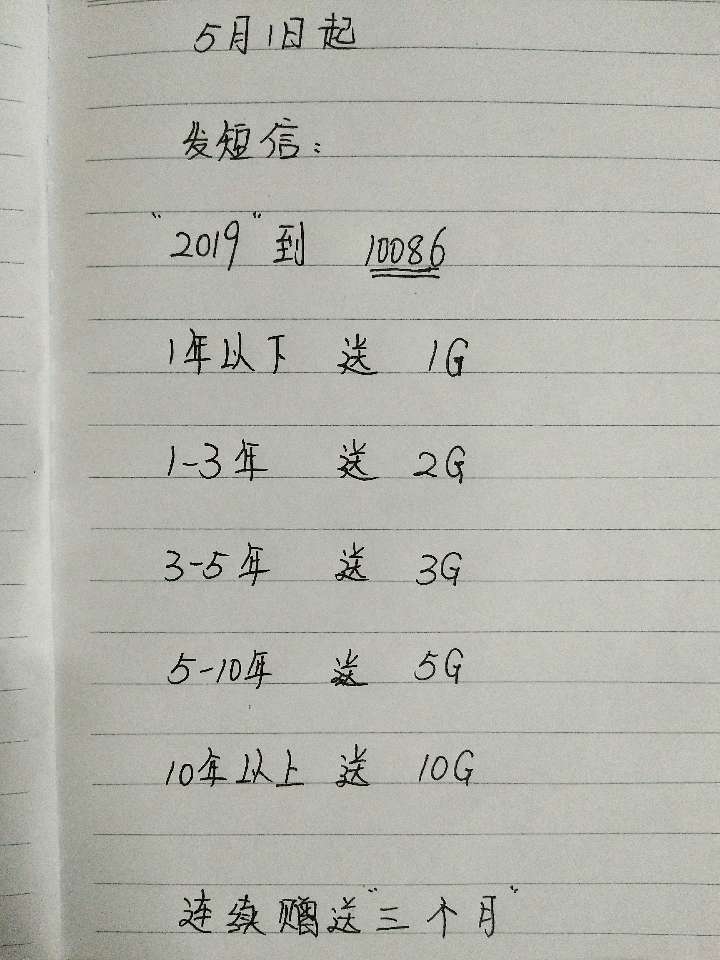 5月1日起
发短信：
"2019"到 10086
1年以下 送 1G
1-3年 送 2G
3-5年 送 3G
5-10年 送 5G
10年以上 送 10G
连续赠送"三个月"